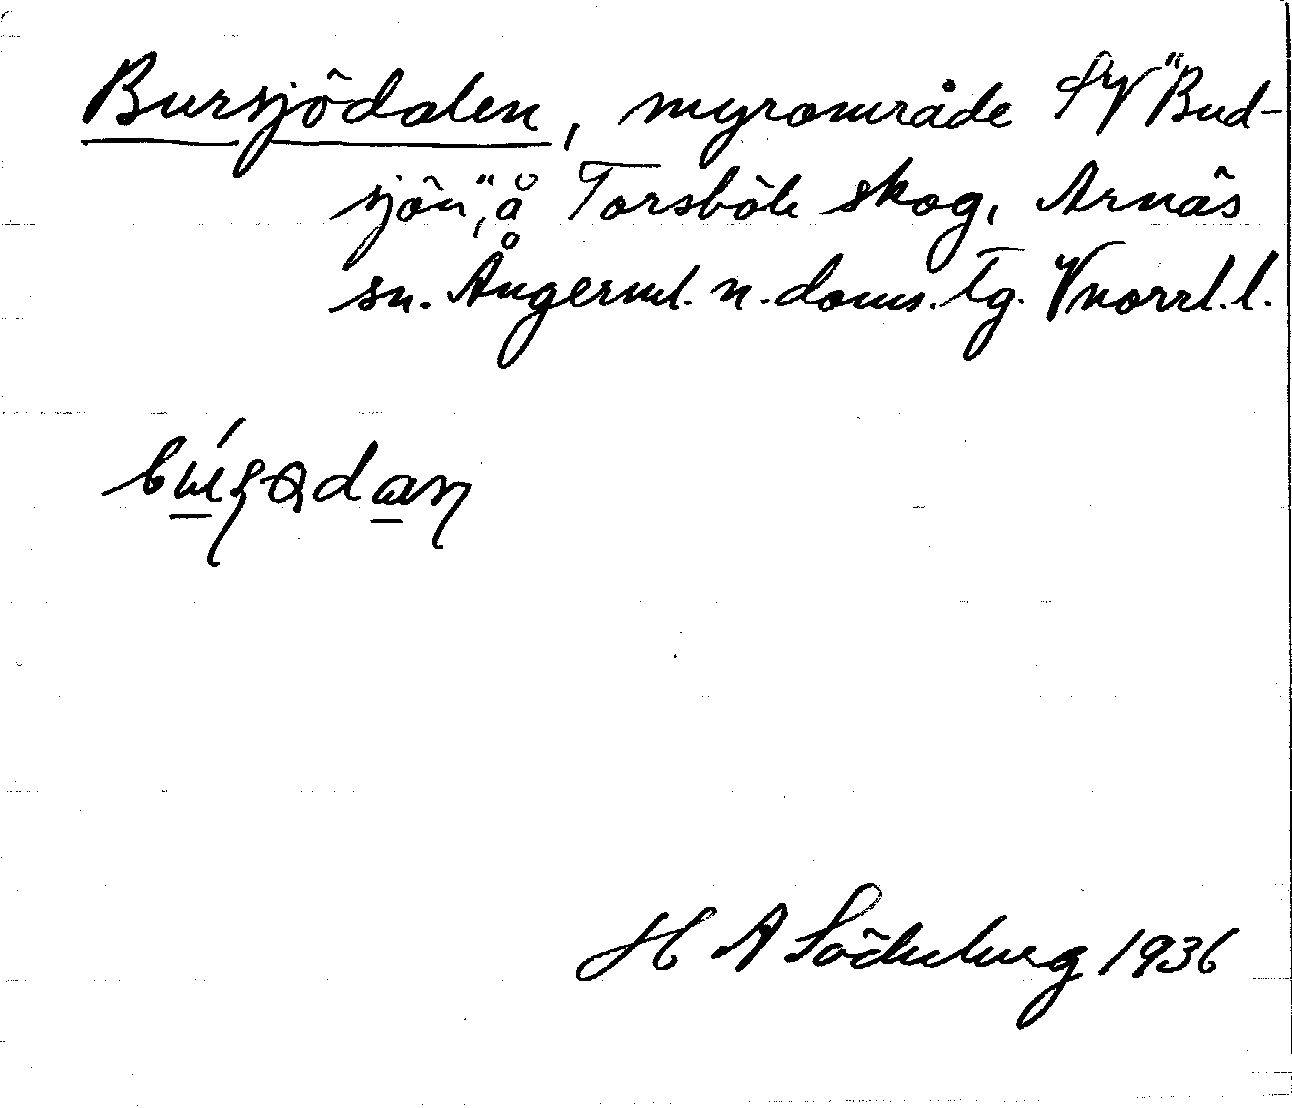 Bursjödalen, myrområde SV "Bud-
sjön", å Torsböle skog, Arnäs
sn. Ångerml. n. doms. tg. Vnorrl. l.
H A Söderberg 1936